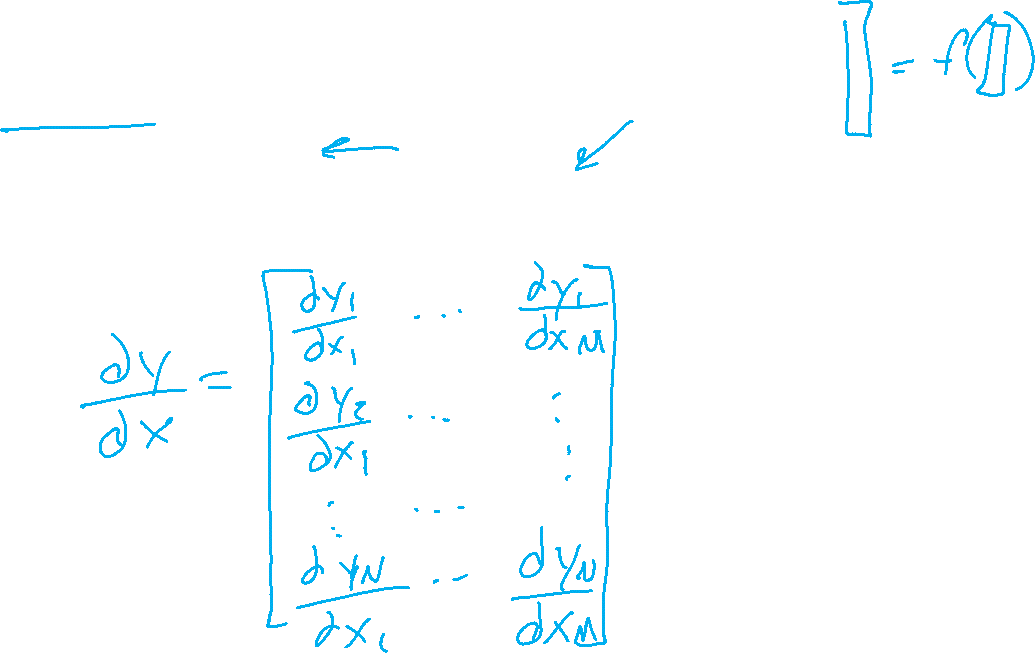 ▯ = f(▯)
∂y/∂x = [ ∂y₁/∂x₁ ... ∂y₁/∂x_M
∂y₂/∂x₁ ... ⋮
⋮ ... ⋮
∂y_N/∂x₁ ... ∂y_N/∂x_M ]